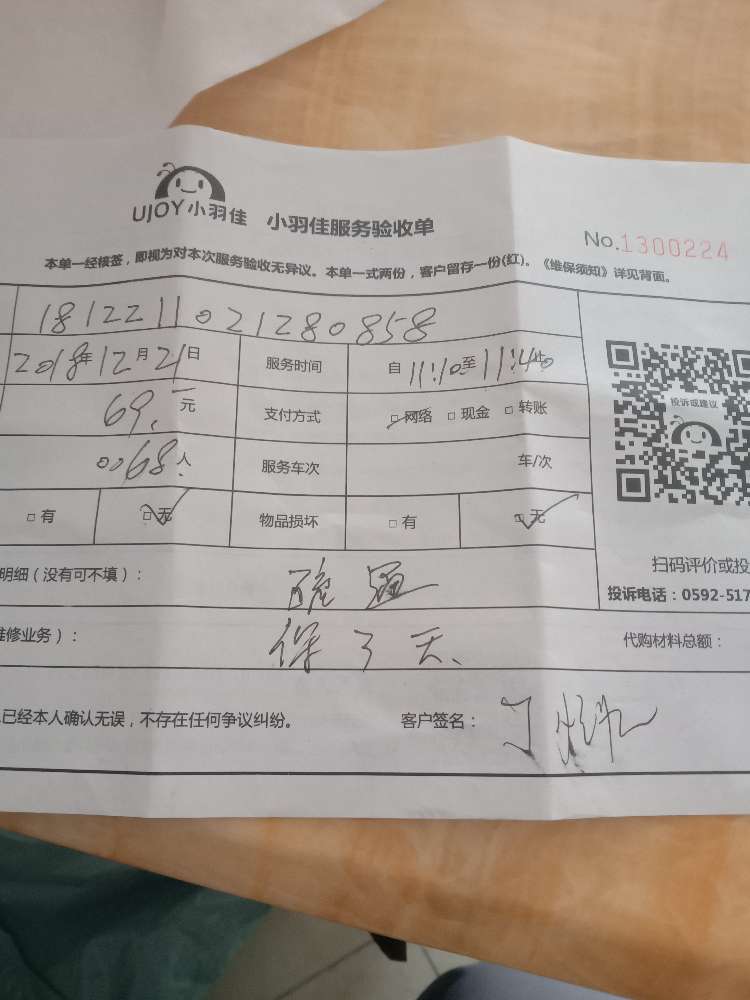 UJOY小羽佳 小羽佳服务验收单
No.1300224
本单一经核签，即视为对本次服务验收无异议。本单一式两份，客户留存一份(红)。《维保须知》详见背面。
1812211021280858
2018年12月21日 服务时间 自 11:10至11:40
69.元 支付方式 □网络 □现金 □转账
0068人 服务车次 车/次
□有 □无 物品损坏 □有 □无
投诉或建议
扫码评价或投
投诉电话：0592-517
明细（没有可不填）：
维修业务）： 保了天、 代购材料总额：
已经本人确认无误，不存在任何争议纠纷。 客户签名：